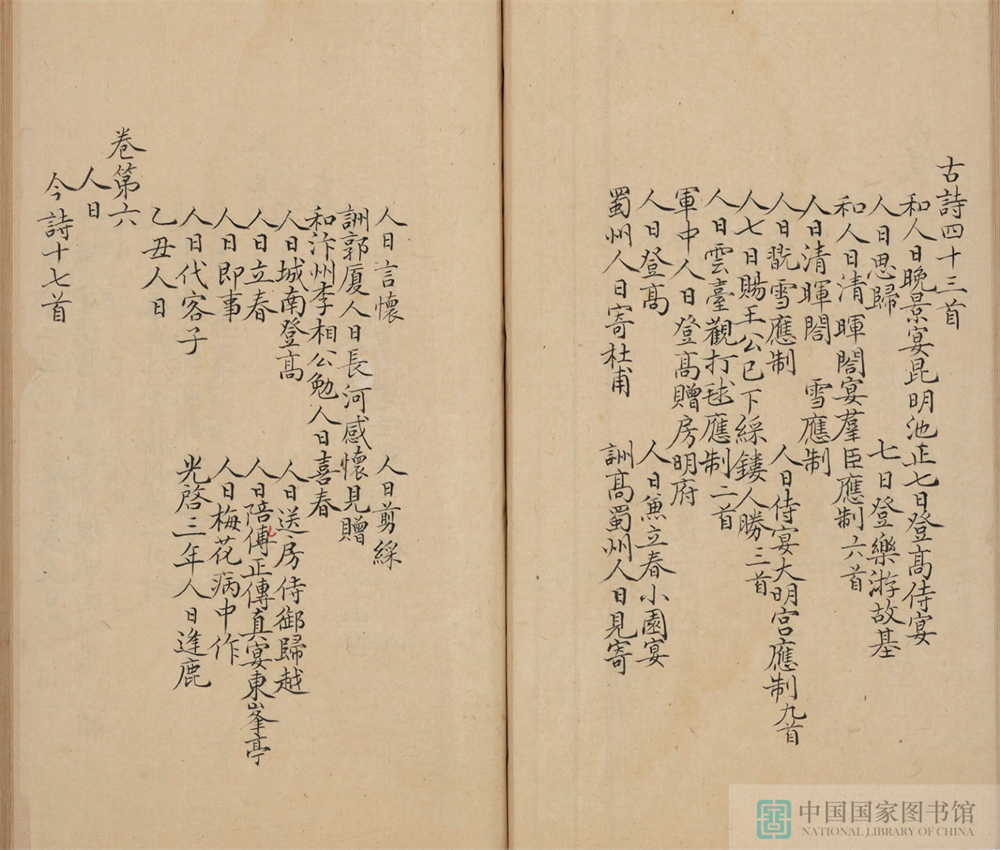 古詩四十三首
和人日晚景宴昆明池 正七日登高侍宴
人日思歸 七日登樂游故基
和人日清暉閣宴羣臣應制六首
人日清暉閣 雪應制
人日翫雪應制 人日侍宴大明宫應制九首
人七日賜王公已下綵鏤人勝三首
人日雲臺觀打毬應制二首
軍中人日登髙贈房明府
人日登髙 人日兼立春小園宴
蜀州人日寄杜甫 詶髙蜀州人日見寄
人日言懷 人日剪綵
詶郭厦人日長河感懷見贈
和汴州李相公勉人日喜春
人日城南登髙 人日送房侍御歸越
人日立春 人日陪傅正傳真宴東峯亭
人日即事 人日梅花病中作
人日代客子 光啓三年人日逢鹿
乙丑人日
卷第六
人日
今詩十七首
中国国家图书馆
NATIONAL LIBRARY OF CHINA